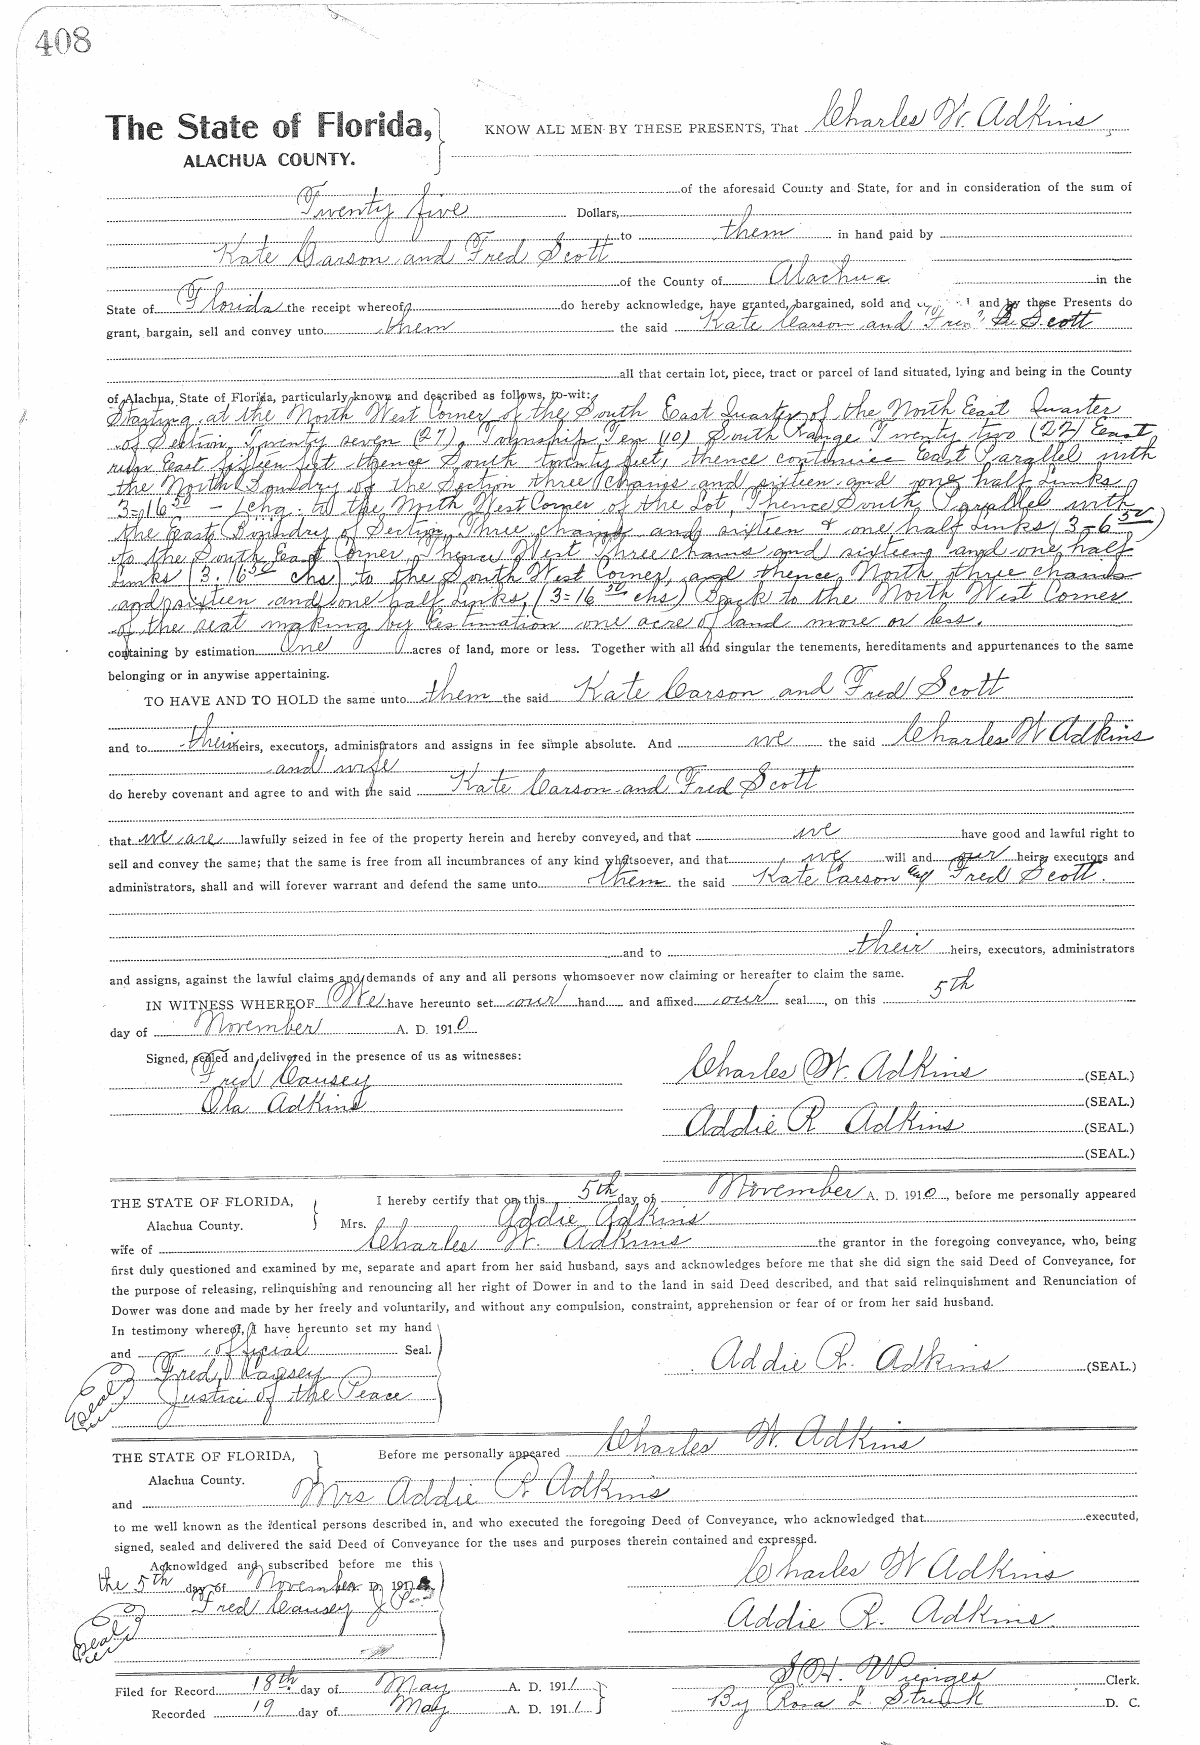 408
The State of Florida, KNOW ALL MEN BY THESE PRESENTS, That Charles W. Adkins
ALACHUA COUNTY.
of the aforesaid County and State, for and in consideration of the sum of
Twenty five Dollars,
to them in hand paid by
Kate Carson and Fred Scott
of the County of Alachua in the
State of Florida the receipt whereof do hereby acknowledge, have granted, bargained, sold and and by these Presents do
grant, bargain, sell and convey unto them the said Kate Carson and Scott
all that certain lot, piece, tract or parcel of land situated, lying and being in the County
of Alachua, State of Florida, particularly known and described as follows, to-wit:
Starting at the North West Corner of the South East Quarter of the North East Quarter
of Section Twenty seven (27), Township Ten (10) South Range Twenty two (22) East
run East fifteen feet thence South twenty feet, thence continues East Parallel with
the North Boundry of the Section three chains and sixteen and one half Links
3=16 50 - chg. to the North West Corner of the Lot, Thence South Parallel with
the East Boundry of Section Three chains and sixteen & one half Links (3=6 50)
to the South East Corner, Thence West Three chains and sixteen and one half
Links (3.16 50 chs) to the South West Corner, and thence North three chains
and sixteen and one half Links, (3=16 50 chs) Back to the North West Corner
of the seat making by Estimation one acre of land more or less.
containing by estimation One acres of land, more or less. Together with all and singular the tenements, hereditaments and appurtenances to the same
belonging or in anywise appertaining.
TO HAVE AND TO HOLD the same unto them the said Kate Carson and Fred Scott
and to their heirs, executors, administrators and assigns in fee simple absolute. And we the said Charles W Adkins
and wife
do hereby covenant and agree to and with the said Kate Carson and Fred Scott
that we are lawfully seized in fee of the property herein and hereby conveyed, and that we have good and lawful right to
sell and convey the same; that the same is free from all incumbrances of any kind whatsoever, and that we will and our heirs, executors and
administrators, shall and will forever warrant and defend the same unto them the said Kate Carson and Fred Scott.
and to their heirs, executors, administrators
and assigns, against the lawful claims and demands of any and all persons whomsoever now claiming or hereafter to claim the same.
IN WITNESS WHEREOF We have hereunto set our hand and affixed our seal, on this 5th
day of November A. D. 1910
Signed, sealed and delivered in the presence of us as witnesses:
Fred Causey Charles W. Adkins (SEAL.)
Ola Adkins (SEAL.)
Addie R Adkins (SEAL.)
(SEAL.)
THE STATE OF FLORIDA, I hereby certify that on this 5th day of November A. D. 1910, before me personally appeared
Alachua County. Mrs. Addie Adkins
wife of Charles W. Adkins the grantor in the foregoing conveyance, who, being
first duly questioned and examined by me, separate and apart from her said husband, says and acknowledges before me that she did sign the said Deed of Conveyance, for
the purpose of releasing, relinquishing and renouncing all her right of Dower in and to the land in said Deed described, and that said relinquishment and Renunciation of
Dower was done and made by her freely and voluntarily, and without any compulsion, constraint, apprehension or fear of or from her said husband.
In testimony whereof, I have hereunto set my hand
and official Seal. Addie R. Adkins (SEAL.)
Fred Causey
Seal Justice of the Peace
THE STATE OF FLORIDA, Before me personally appeared Charles W. Adkins
Alachua County.
and Mrs Addie R Adkins
to me well known as the identical persons described in, and who executed the foregoing Deed of Conveyance, who acknowledged that executed,
signed, sealed and delivered the said Deed of Conveyance for the uses and purposes therein contained and expressed.
Acknowldged and subscribed before me this Charles W Adkins
the 5th day of November A. D. 191
Fred Causey J P Addie R. Adkins.
Seal
Filed for Record 18th day of May A. D. 1911 S. H. Wienges Clerk.
Recorded 19 day of May A. D. 1911 By Rosa L. D. C.